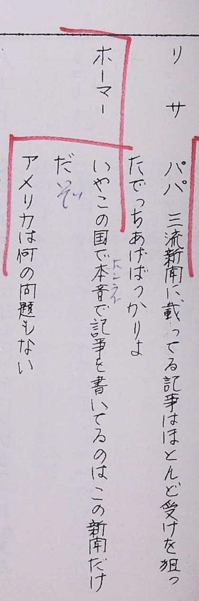 リサ　パパ　三流新聞に載ってる記事はほとんど受けを狙っ
たでっちあげばっかりよ
ホーマー　いやこの国で本音で記事を書いてるのはこの新聞だけ
ホンネ
だぞ
アメリカは何の問題もない